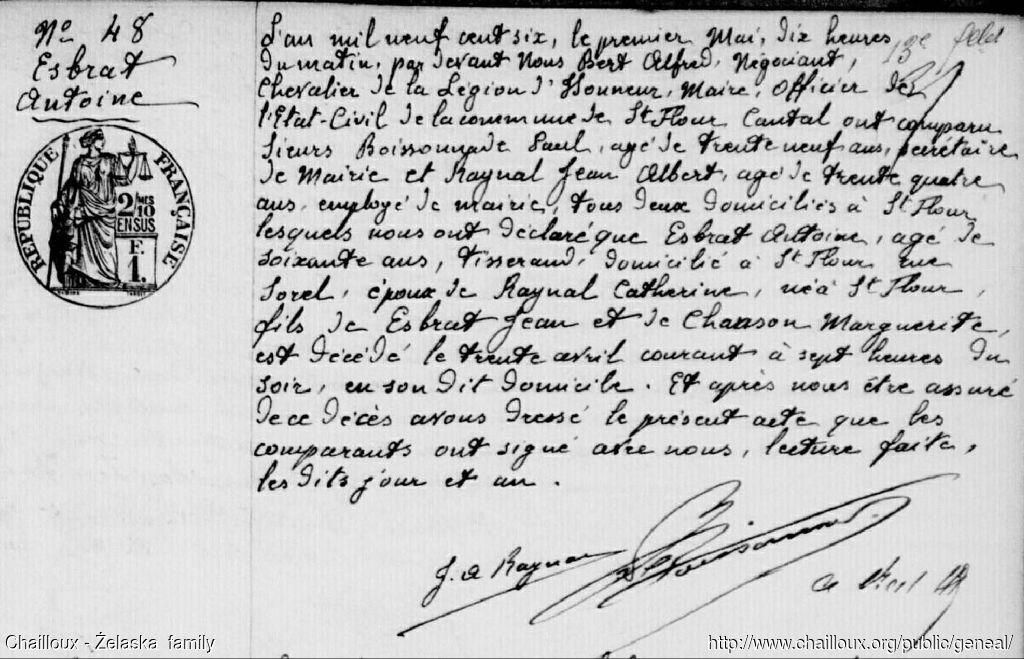 No 48
Esbrat
Antoine
RÉPUBLIQUE FRANÇAISE
2/10 MES
EN SUS
F.
1.
L'an mil neuf cent six, le premier Mai, dix heures
du matin, par devant Nous Bert Alfred, Négociant,
Chevalier de la Légion d'Honneur, Maire, Officier de
l'Etat-Civil de la commune de St Flour Cantal ont comparu
Sieurs Boissonnade Paul, agé de trente neuf ans, secrétaire
de Mairie et Raynal Jean Albert, agé de trente quatre
ans, employé de mairie, tous deux domiciliés à St Flour
lesquels nous ont déclaré que Esbrat Antoine, agé de
soixante ans, tisserand, domicilié à St Flour rue
Sorel, époux de Raynal Catherine, né à St Flour,
fils de Esbrat Jean et de Chanson Marguerite,
est décédé le trente avril courant à sept heures du
soir, en son dit domicile. Et après nous être assuré
de ce décès avons dressé le présent acte que les
comparants ont signé avec nous, lecture faite,
les dits jour et an.
13e
J. A Raynal
Boissonnade
Chailloux - Želaska family
http://www.chailloux.org/public/geneal/